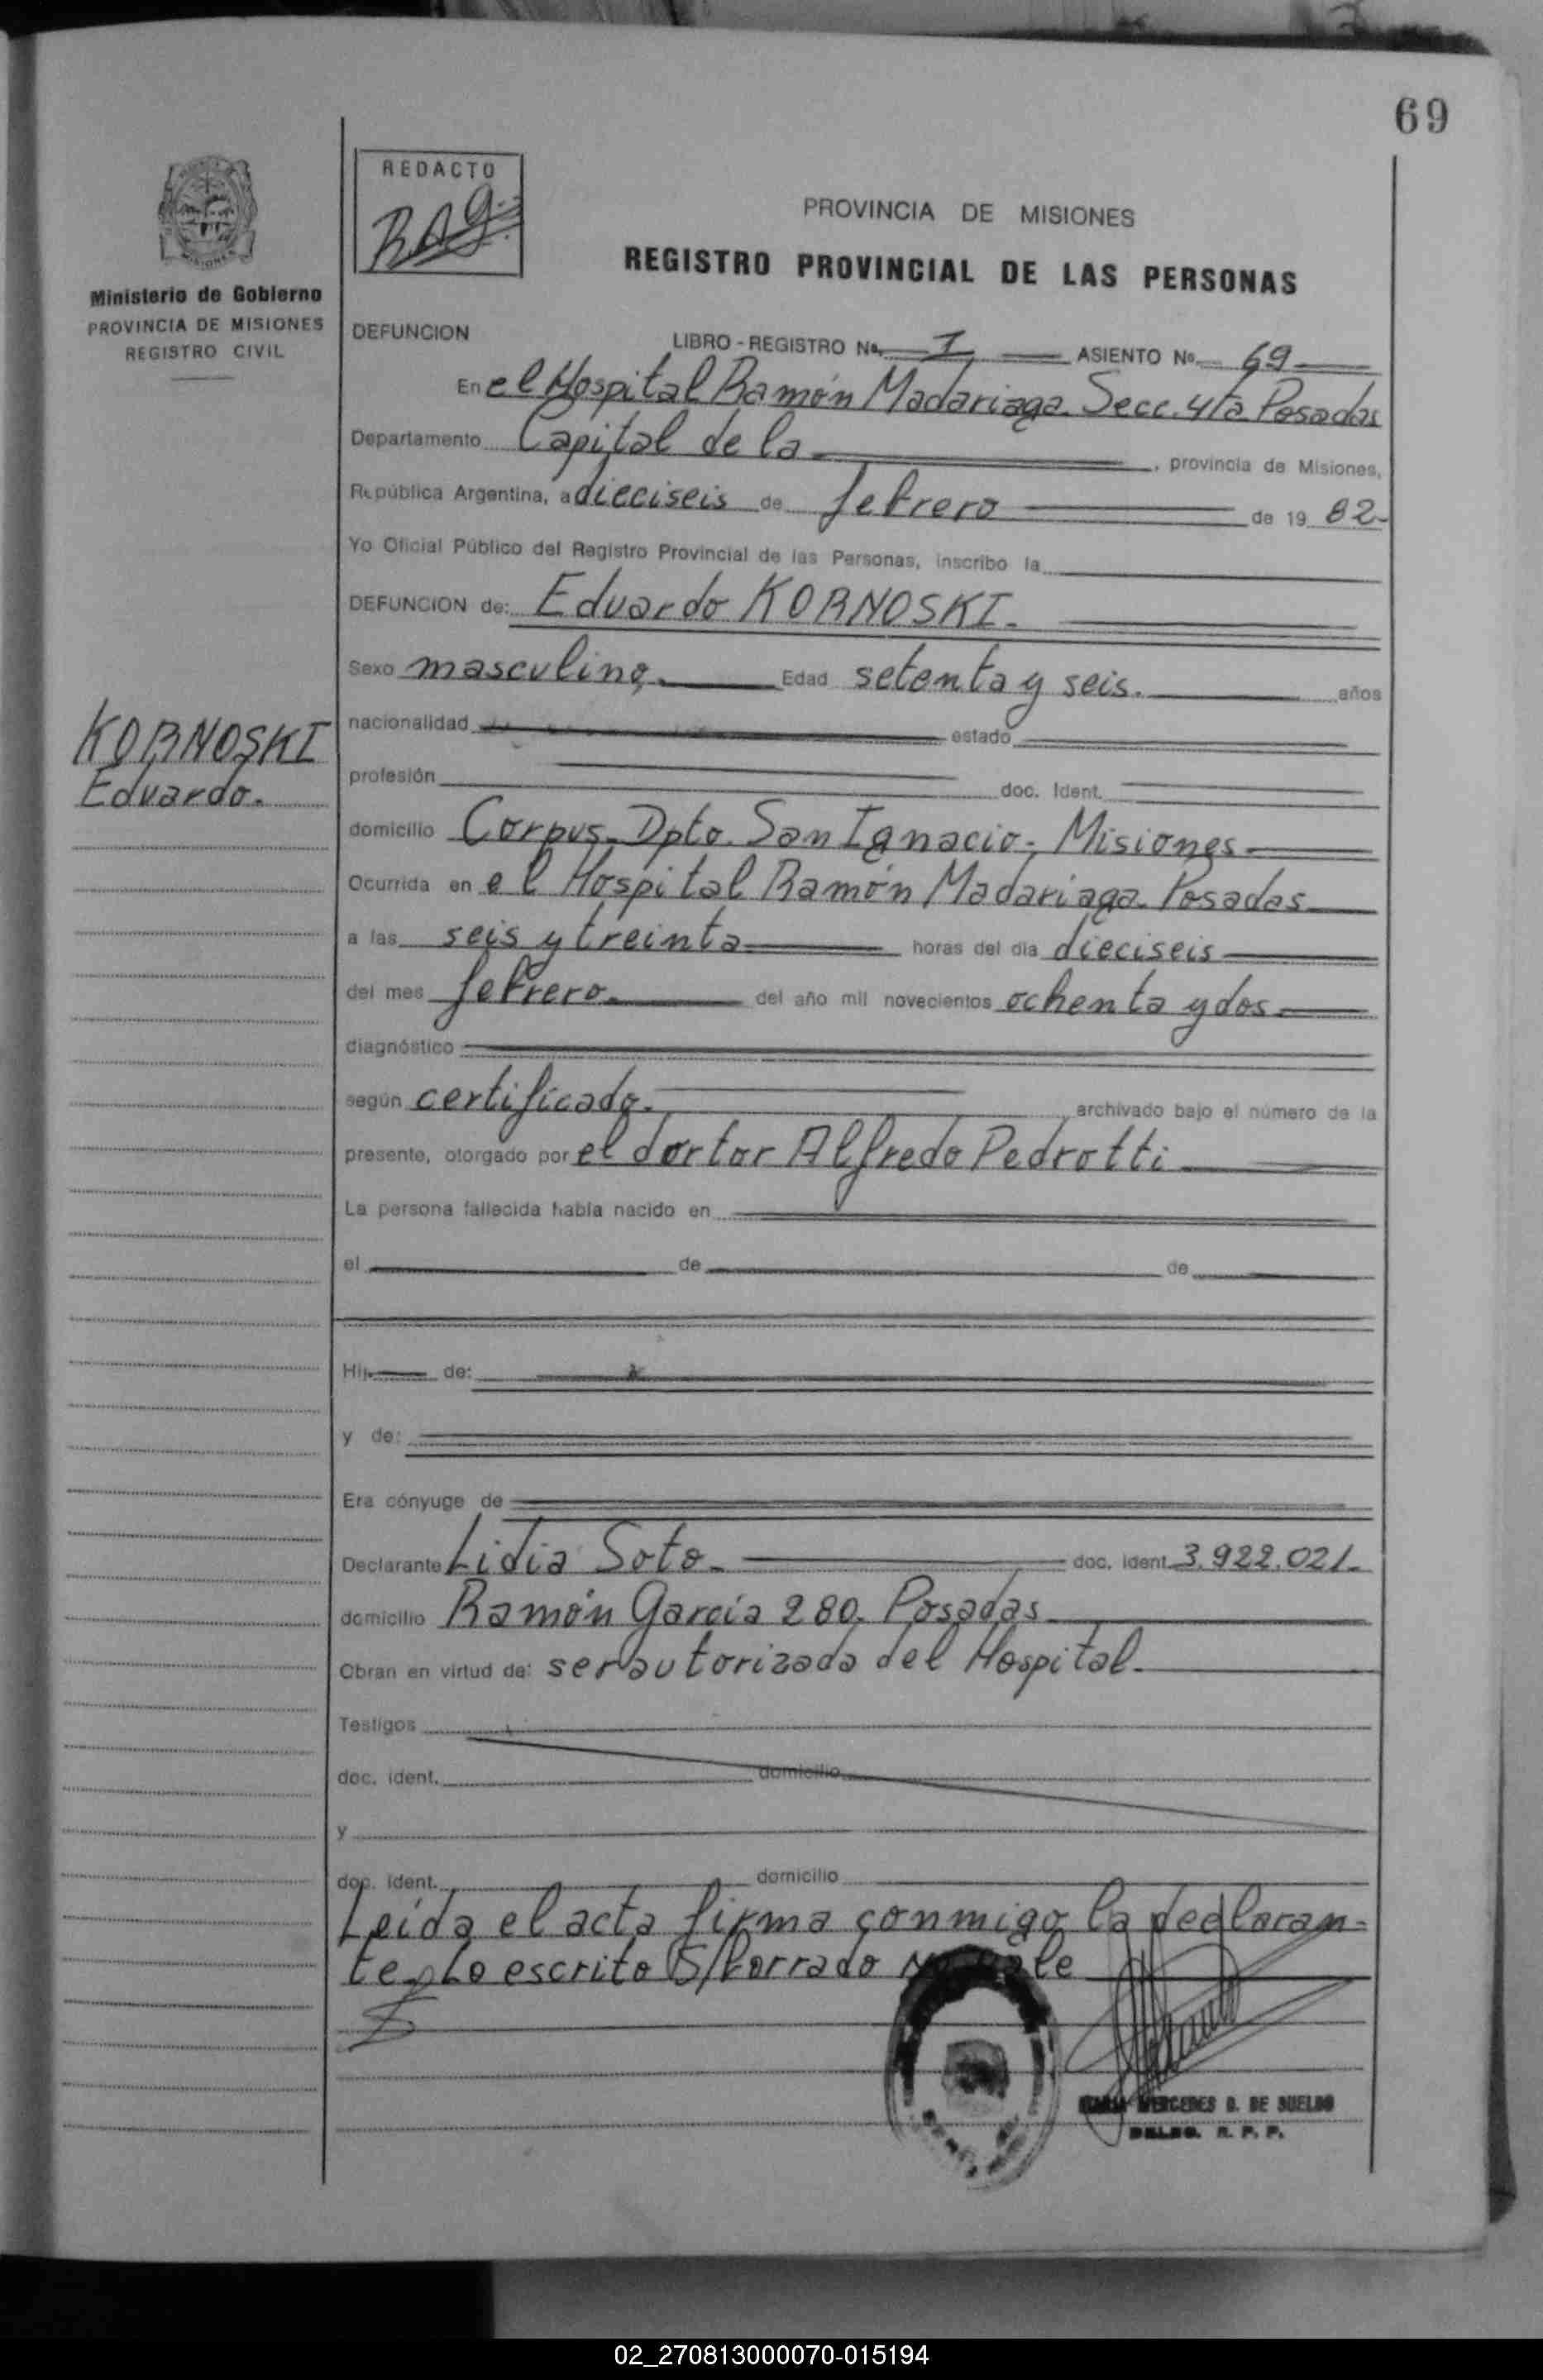 69
REDACTO
PROVINCIA DE MISIONES
REGISTRO PROVINCIAL DE LAS PERSONAS
Ministerio de Gobierno
PROVINCIA DE MISIONES
REGISTRO CIVIL
DEFUNCION LIBRO - REGISTRO No. I ASIENTO No. 69
En el Hospital Ramón Madariaga. Secc. 4ta Posadas
Departamento Capital de la , provincia de Misiones,
República Argentina, a dieciseis de febrero de 19 82-
Yo Oficial Público del Registro Provincial de las Personas, inscribo la
DEFUNCION de: Eduardo KORNOSKI.
Sexo masculino. Edad setenta y seis. años
KORNOSKI
Eduardo.
nacionalidad estado
profesión doc. Ident.
domicilio Corpus- Dpto. San Ignacio- Misiones
Ocurrida en el Hospital Ramón Madariaga. Posadas
a las seis y treinta horas del día dieciseis
del mes febrero. del año mil novecientos ochenta y dos
diagnóstico
según certificado. archivado bajo el número de la
presente, otorgado por el doctor Alfredo Pedrotti
La persona fallecida había nacido en
el de de
Hij de:
y de:
Era cónyuge de
Declarante Lidia Soto. doc. ident. 3.922.021.
domicilio Ramón García 280. Posadas
Obran en virtud de: ser autorizada del Hospital.
Testigos
doc. ident. domicilio
y
doc. ident. domicilio
Leída el acta firma conmigo la declaran-
te. Lo escrito S/borrado vale
MERCEDES G. DE SUELDO
DELEG. R. P. P.
02_270813000070-015194